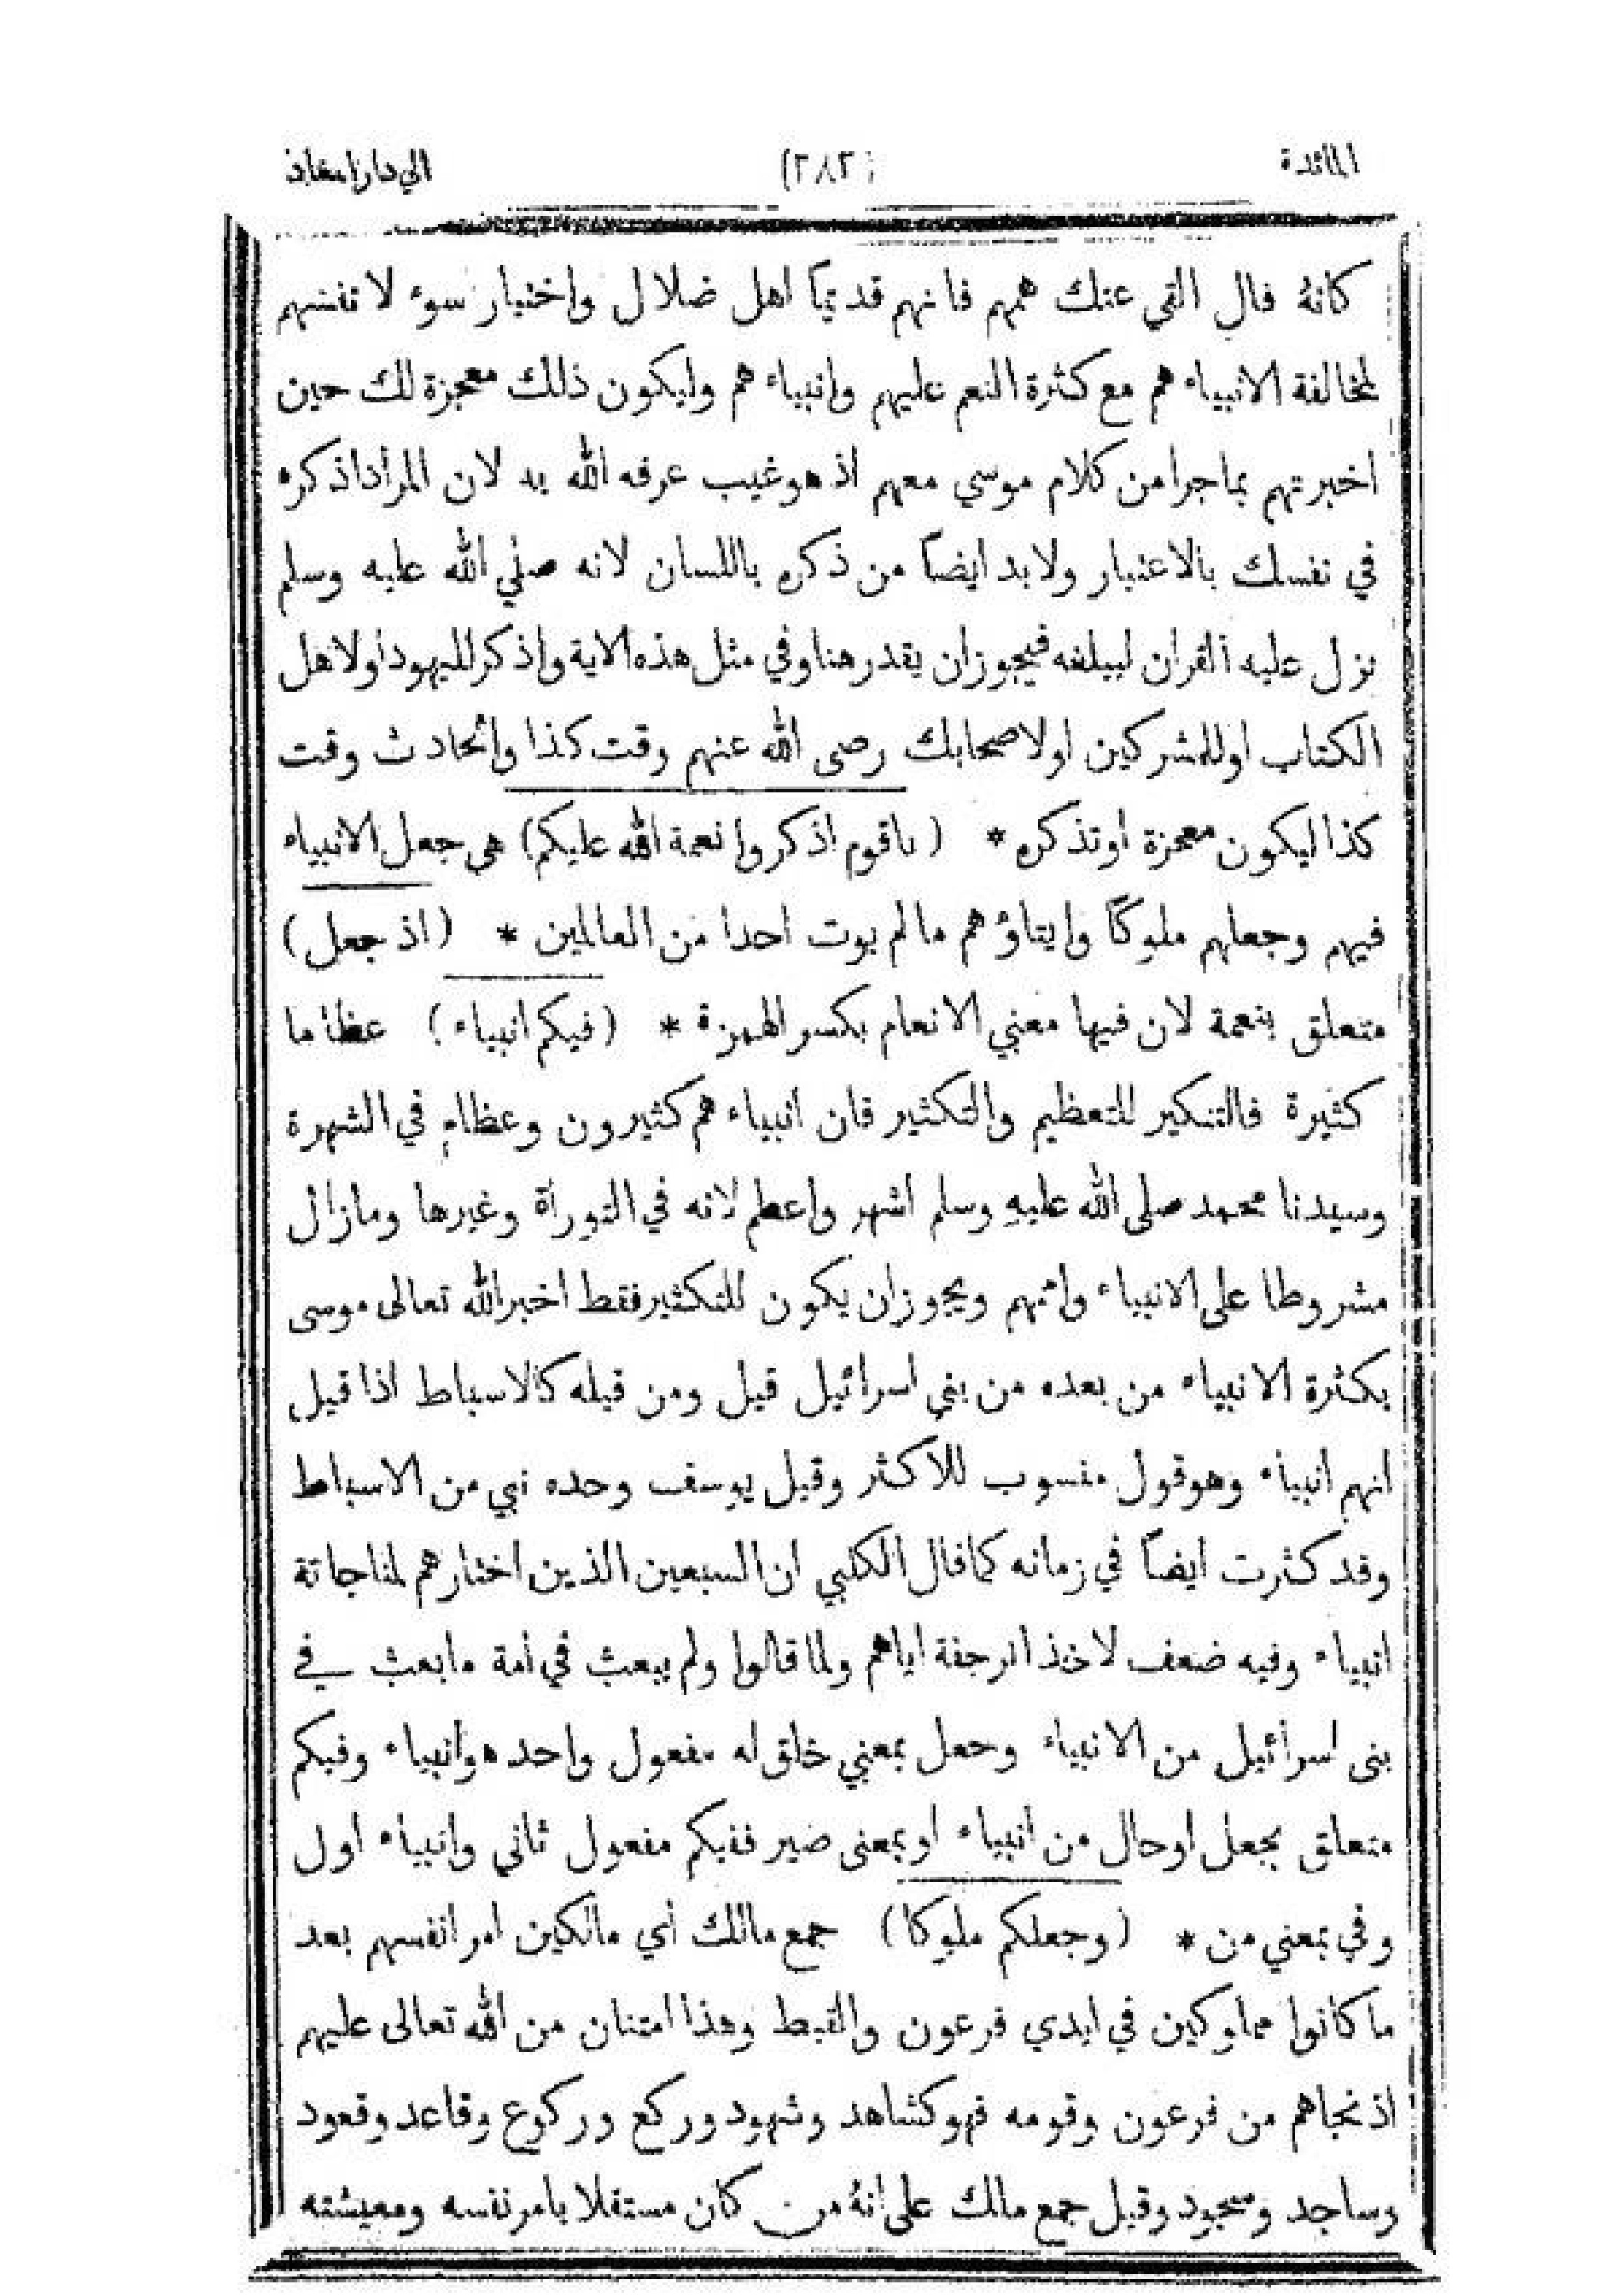 المائدة (٢٨٢) الي دار
كانهُ قال القي عنك همهم فانهم قديمًا اهل ضلال واختيار سوء لا نفسهم
لمخالفة الانبياء هم مع كثرة النعم عليهم وانبياء هم وليكون ذلك معجزة لك حين
اخبرتهم بماجرا من كلام موسي معهم اذ هو غيب عرفه الله به لان المراد اذكره
في نفسك بالاعتبار ولا بد ايضاً من ذكره باللسان لانه صلي الله عليه وسلم
نزل عليه القران ليبلغه فيجوز ان يقدر هنا وفي مثل هذه الاية واذكر لليهود اولاهل
الكتاب اوللمشركين اولاصحابك رضى الله عنهم وقت كذا والحادث وقت
كذا ليكون معجزة اوتذكره * (ياقوم اذكروا نعمة الله عليكم) هى جعل الانبياء
فيهم وجعلهم ملوكاً وايتاؤهم مالم يوت احدا من العالمين * (اذ جعل)
متعلق بنعمة لان فيها معني الانعام بكسر الهمزة * (فيكم انبياء) عظاما
كثيرة فالتنكير للتعظيم والتكثير فان انبياء هم كثيرون وعظام في الشهرة
وسيدنا محمد صلى الله عليهِ وسلم اشهر واعظم لانه في التوراة وغيرها ومازال
مشروطا على الانبياء وامهم ويجوز ان يكون للتكثير فقط اخبر الله تعالى موسى
بكثرة الانبياء من بعده من بني اسرائيل قيل ومن قبله كالاسباط اذا قيل
انهم انبياء وهو قول منسوب للاكثر وقيل يوسف وحده نبي من الاسباط
وقد كثرت ايضاً في زمانه كماقال الكلبي ان السبعين الذين اختارهم لمناجاتة
انبياء وفيه ضعف لاخذ الرجفة اياهم ولما قالوا ولم يبعث في امة مابعث في
بنى اسرائيل من الانبياء وجعل بمعني خلق له مفعول واحد هو انبياء وفيكم
متعلق بجعل اوحال من انبياء او بمعنى صير ففيكم مفعول ثانى وانبياء اول
وفي بمعني من * (وجعلكم ملوكا) جمع مالك أي مالكين امر انفسهم بعد
ما كانوا مملوكين في ايدي فرعون والقبط وهذا امتنان من الله تعالى عليهم
اذ نجاهم من فرعون وقومه فهو كشاهد وشهود وركع وركوع وقاعد وقعود
وساجد وسجود وقيل جمع مالك على انهُ من كان مستقلا بامر نفسه ومعيشته